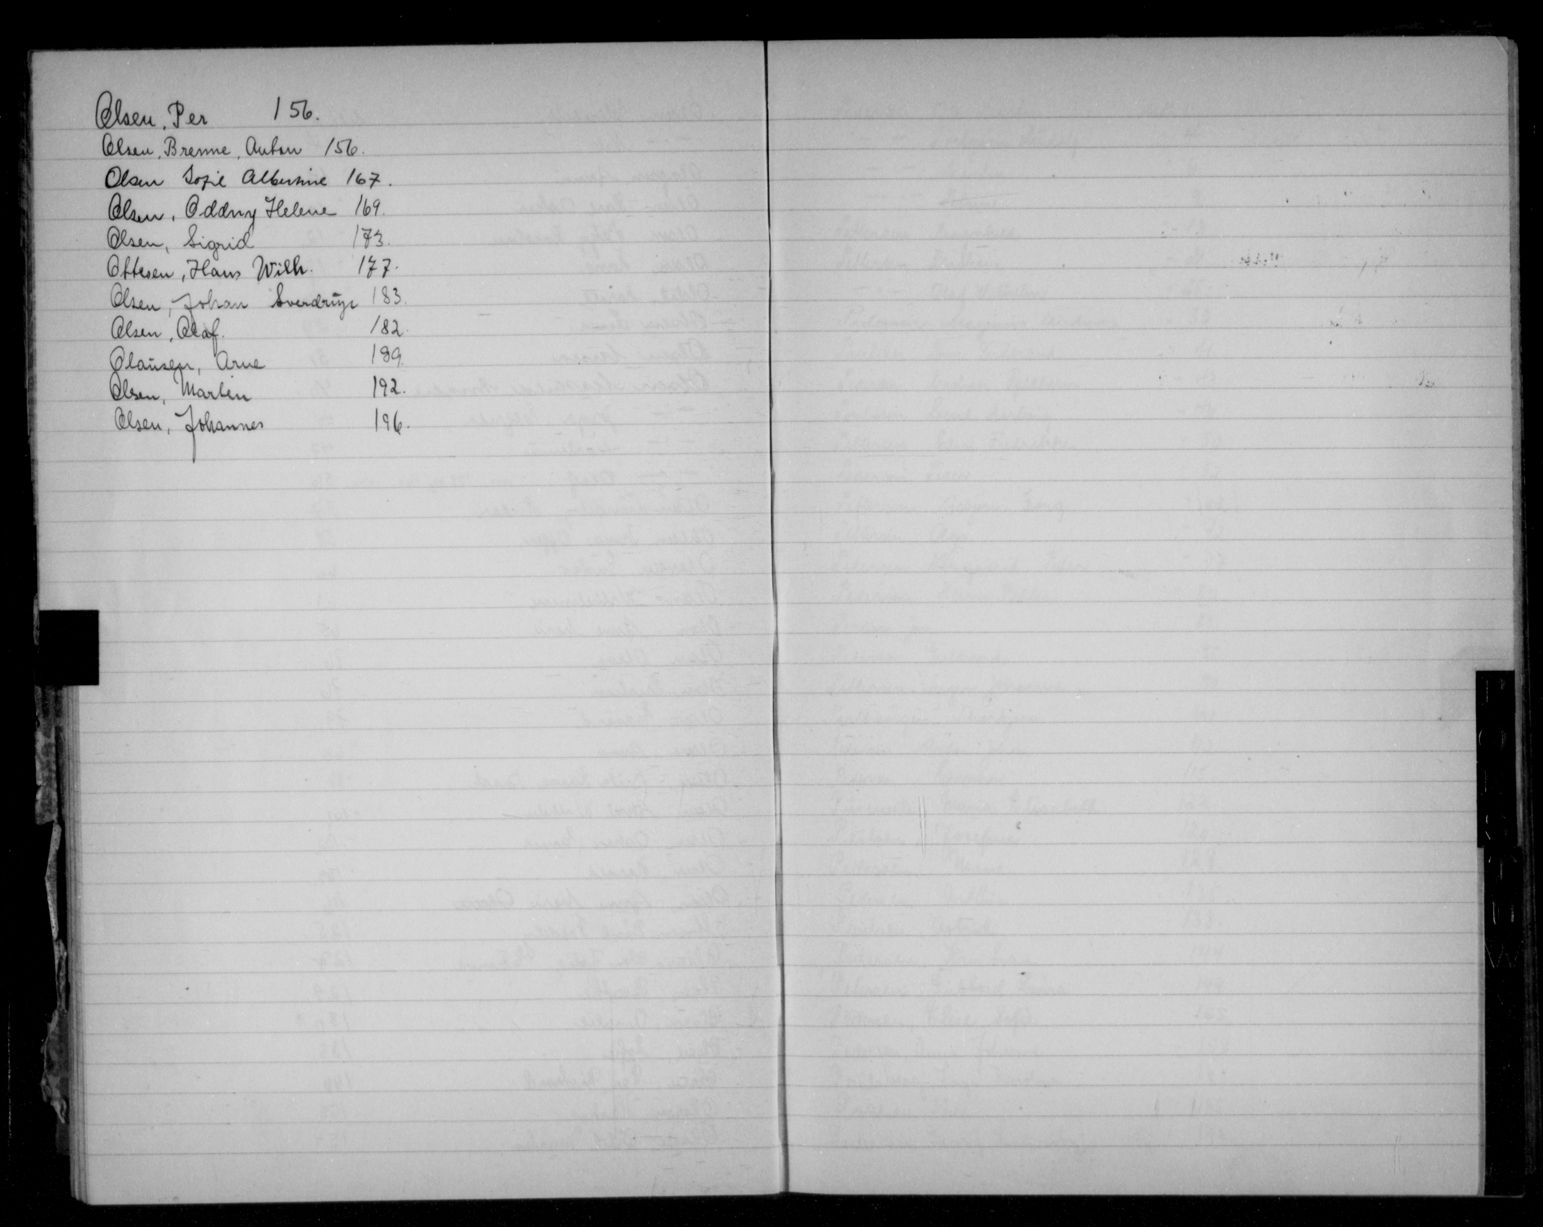 Olsen, Per 156.
Olsen, Brenne, Anton 156.
Olsen Sofie Albertine 167.
Olsen, Oddny Helene 169.
Olsen, Sigrid 173.
Ottesen, Hans Wilh. 177.
Olsen, Johan Sverdrup 183.
Olsen, Olaf. 182.
Olaussen, Arne 189.
Olsen, Martin 192.
Olsen, Johannes 196.